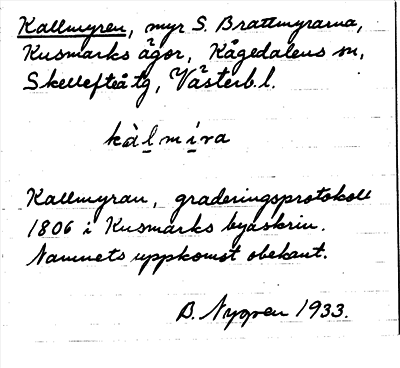 Kallmyren, myr S. Brattmyrarna,
Kusmarks ägor, Kågedalens sn,
Skellefteå tg, Västerb.l.
kàlmíra
Kallmyran, graderingsprotokoll
1806 i Kusmarks byaskrin.
Namnets uppkomst obekant.
B. Nygren 1933.